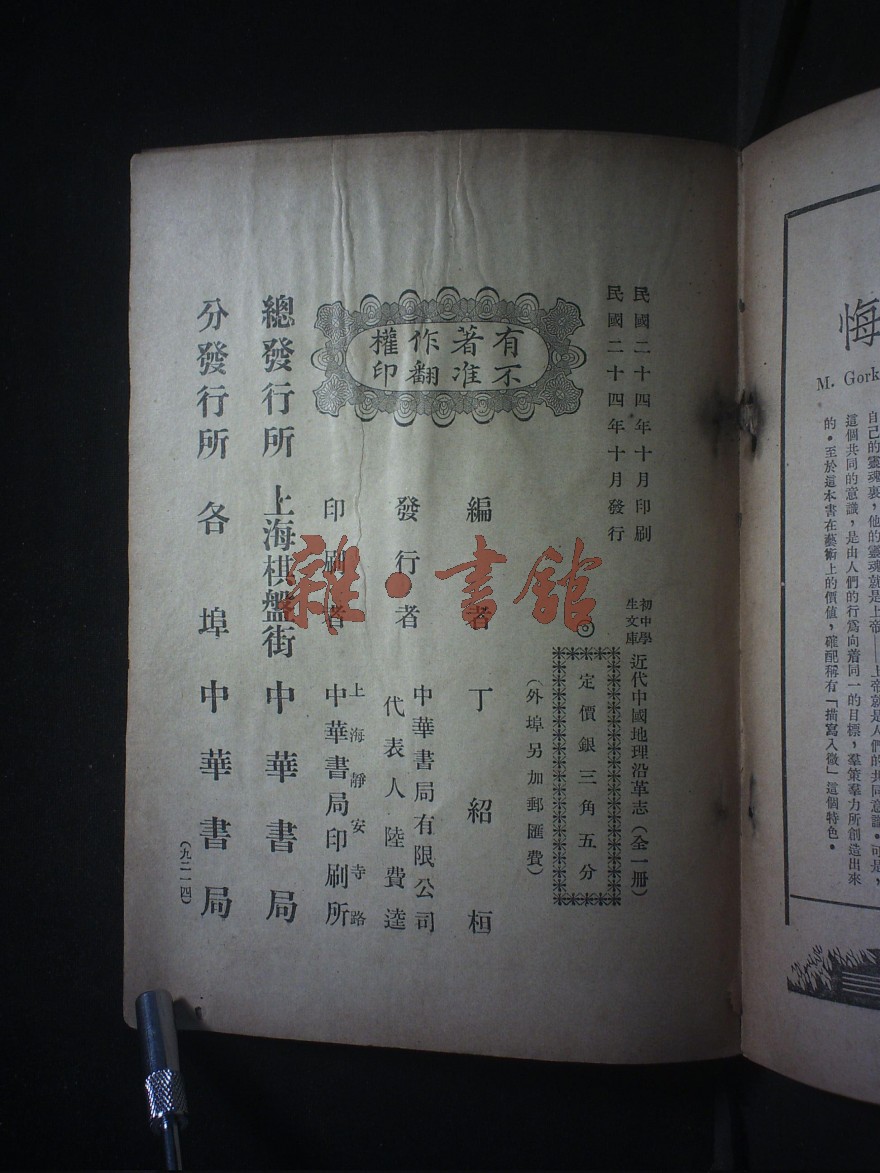 悔
M. Gork
自己的靈魂裏，他的靈魂就是上帝——上帝就是人們的共同意識。可是，
這個共同的意識，是由人們的行爲向着同一的目標，羣策羣力所創造出來
的。至於這本書在藝術上的價值，確配稱有「描寫入微」這個特色。
民國二十四年十月印刷
民國二十四年十月發行
初中學生文庫 近代中國地理沿革志（全一册）
定價銀三角五分
（外埠另加郵匯費）
有著作權
不准翻印
編者 丁紹桓
發行者 中華書局有限公司
代表人 陸費逵
印刷者 上海靜安寺路
中華書局印刷所
總發行所 上海棋盤街 中華書局
分發行所 各埠 中華書局
（九二一四）
雜·書館